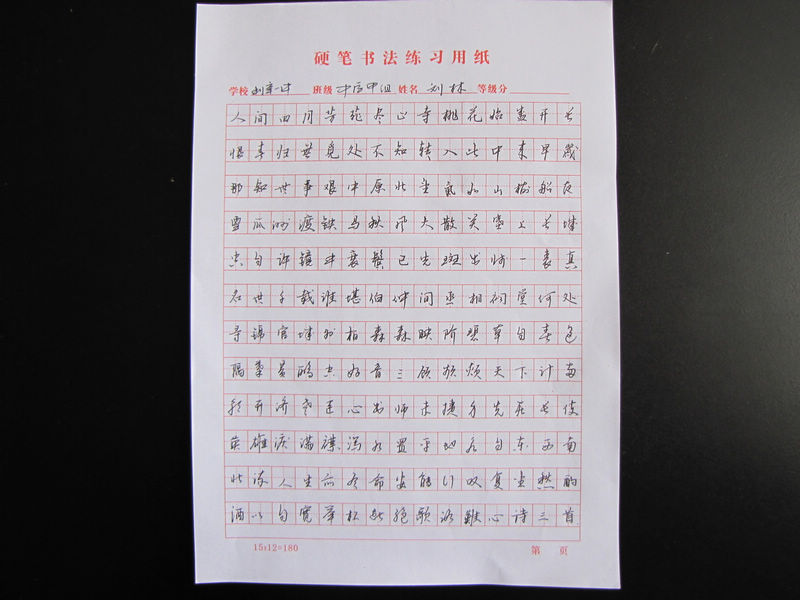 硬笔书法练习用纸
学校 班级 姓名 刘林 等级分
人间四月芳菲尽山寺桃花始盛开长
恨春归无觅处不知转入此中来早岁
那知世事艰中原北望气如山楼船夜
雪瓜洲渡铁马秋风大散关塞上长城
空自许镜中衰鬓已先斑出师一表真
名世千载谁堪伯仲间丞相祠堂何处
寻锦官城外柏森森映阶碧草自春色
隔叶黄鹂空好音三顾频烦天下计两
朝开济老臣心出师未捷身先死长使
英雄泪满襟泻水置平地各自东西南
北流人生亦有命安能行叹复坐愁酌
酒以自宽举杯断绝歌路难心诗三首
15x12=180 第 页